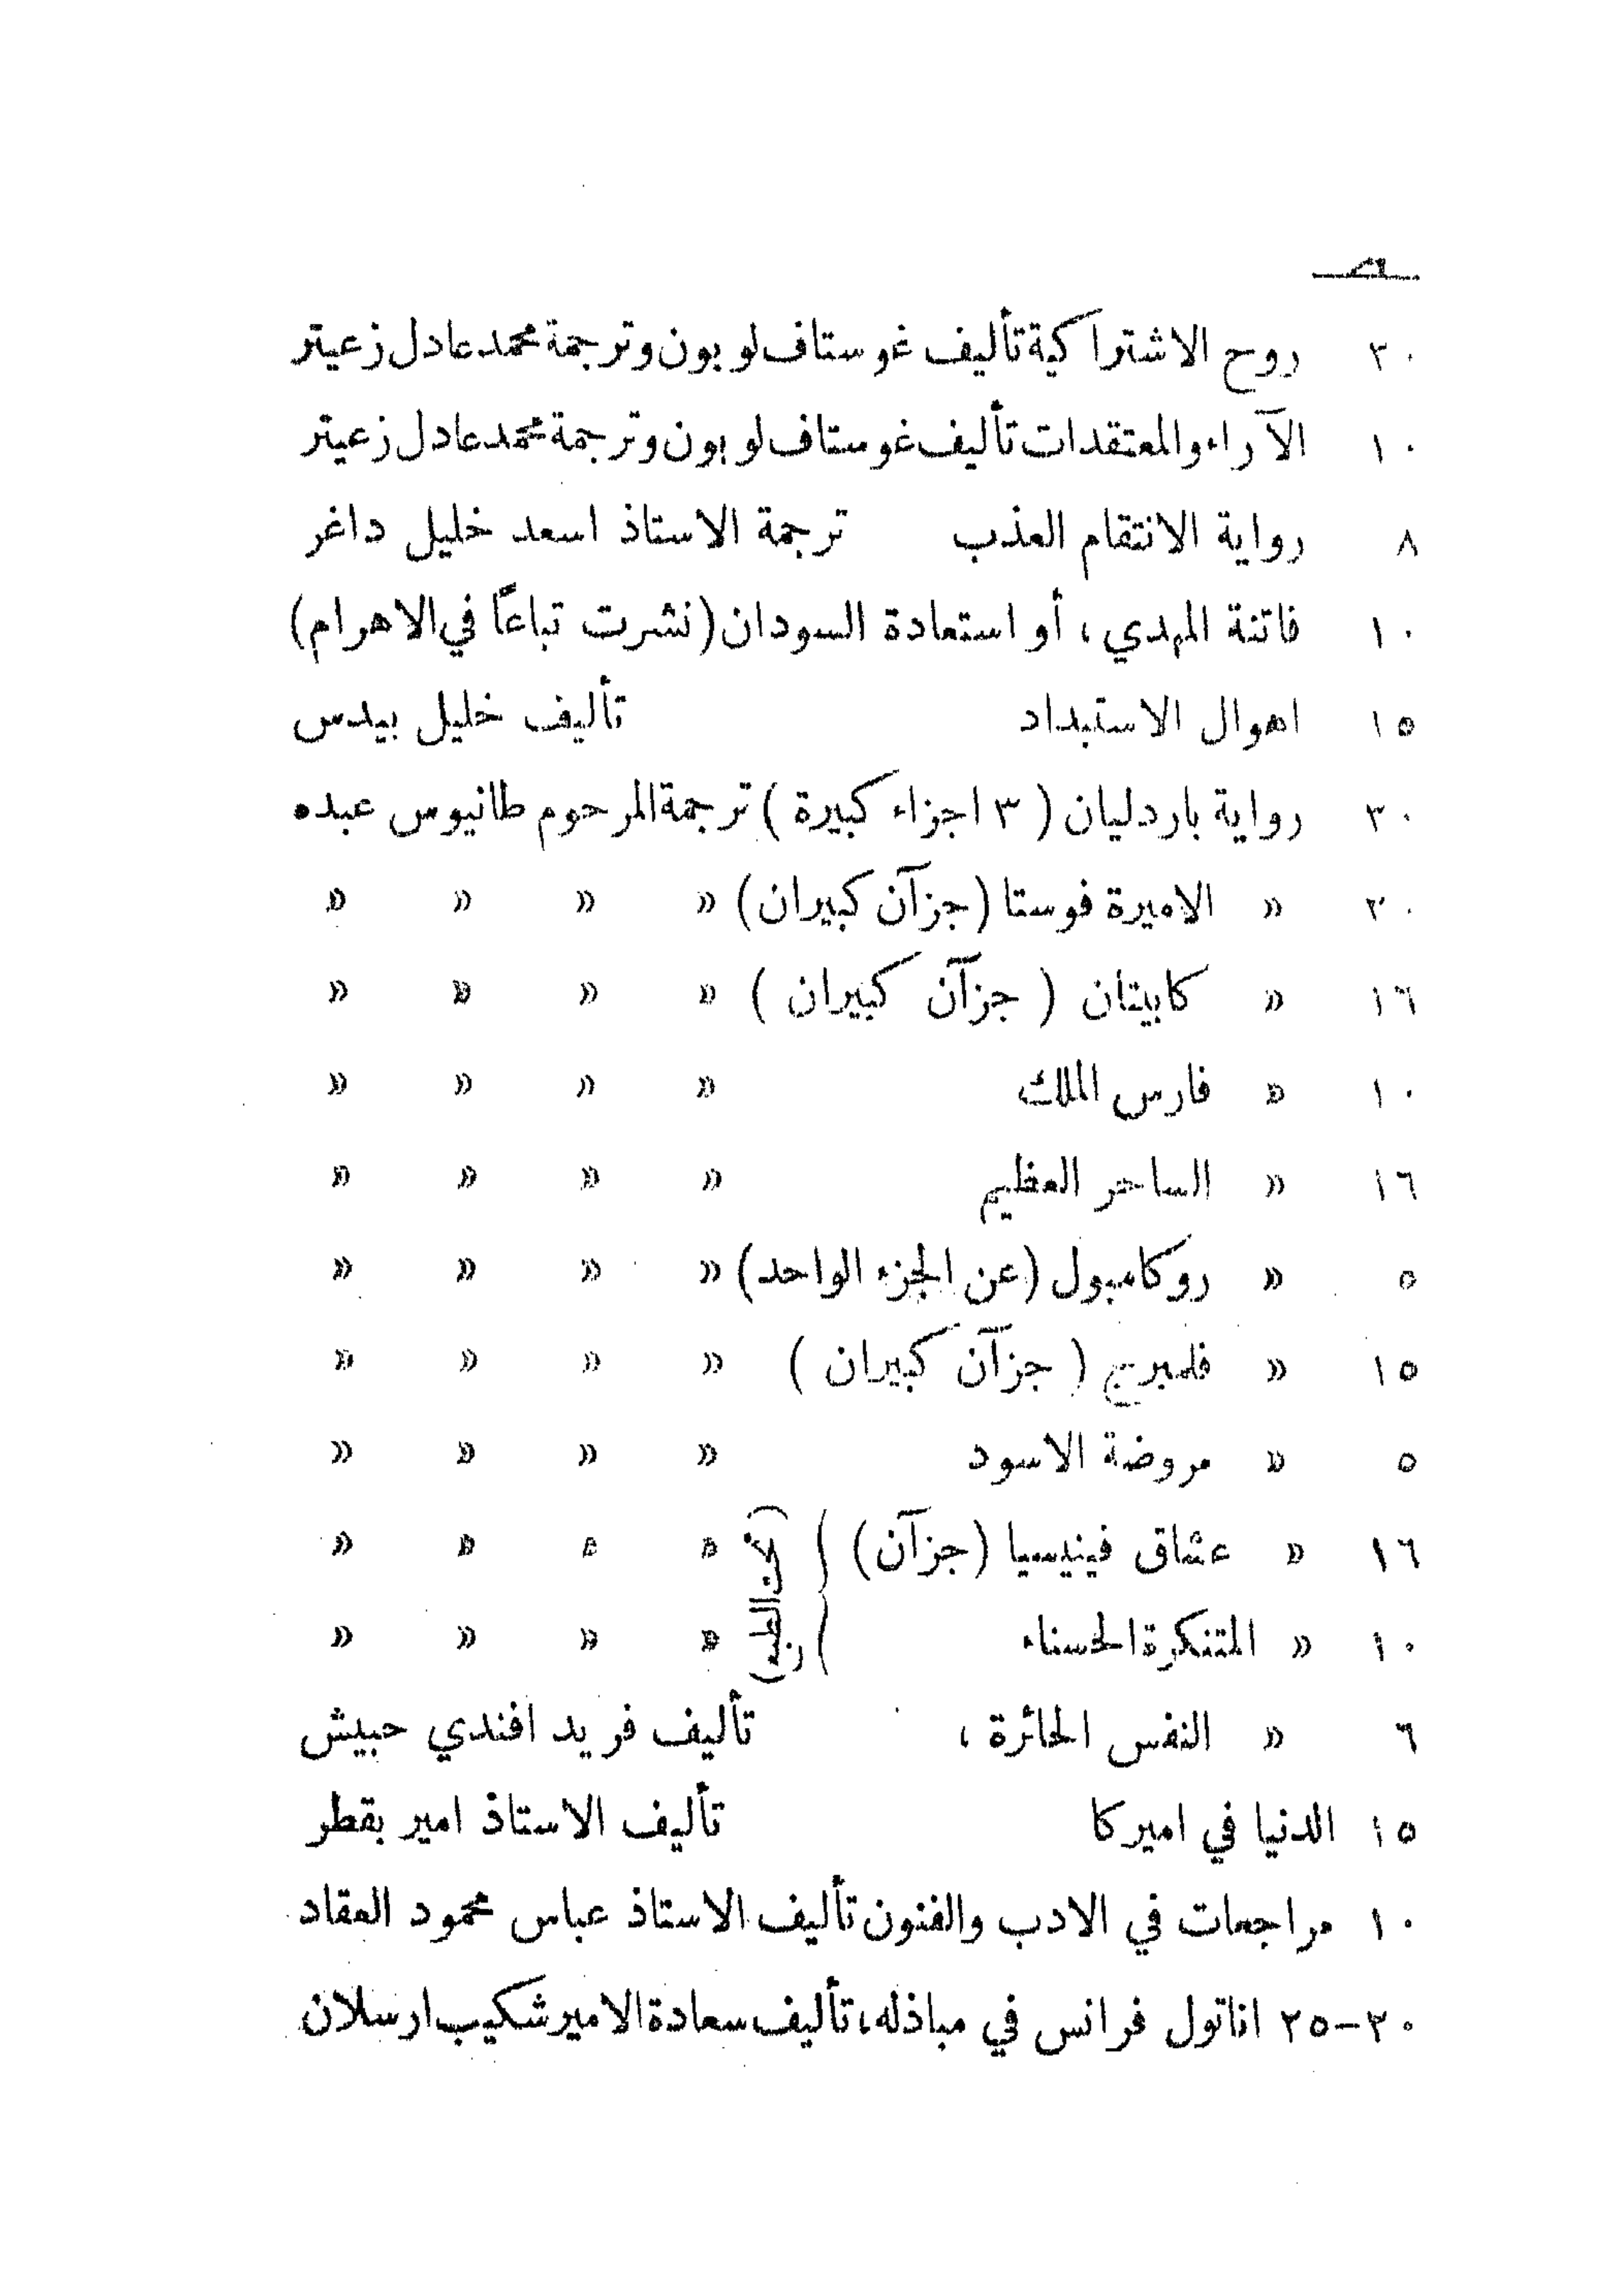 ٣٠ روح الاشتراكية تأليف غوستاف لوبون وترجمة محمد عادل زعيتر
١٠ الآراء والمعتقدات تأليف غوستاف لوبون وترجمة محمد عادل زعيتر
٨ رواية الانتقام العذب ترجمة الاستاذ اسعد خليل داغر
١٠ فاتنة المهدي ، أو استعادة السودان (نشرت تباعاً في الاهرام)
١٥ اهوال الاستبداد تأليف خليل بيدس
٣٠ رواية باردليان ( ٣ اجزاء كبيرة ) ترجمة المرحوم طانيوس عبده
٢٠ « الاميرة فوستا (جزآن كبيران) « « « «
١٦ « كابيتان ( جزآن كبيران ) « « « «
١٠ « فارس الملك « « « «
١٦ « الساحر العظيم « « « «
٥ « روكامبول (عن الجزء الواحد) « « « «
١٥ « فلمبرج ( جزآن كبيران ) « « « «
٥ « مروضة الاسود « « « «
١٦ « عشاق فينيسيا (جزآن) « « « «
(تحت الطبع)
١٠ « المتنكرة الحسناء « « « «
٦ « النفس الحائرة ، تأليف فريد افندي حبيش
١٥ الدنيا في اميركا تأليف الاستاذ امير بقطر
١٠ مراجعات في الادب والفنون تأليف الاستاذ عباس محمود العقاد
٢٠-٢٥ اناتول فرانس في مباذله، تأليف سعادة الامير شكيب ارسلان